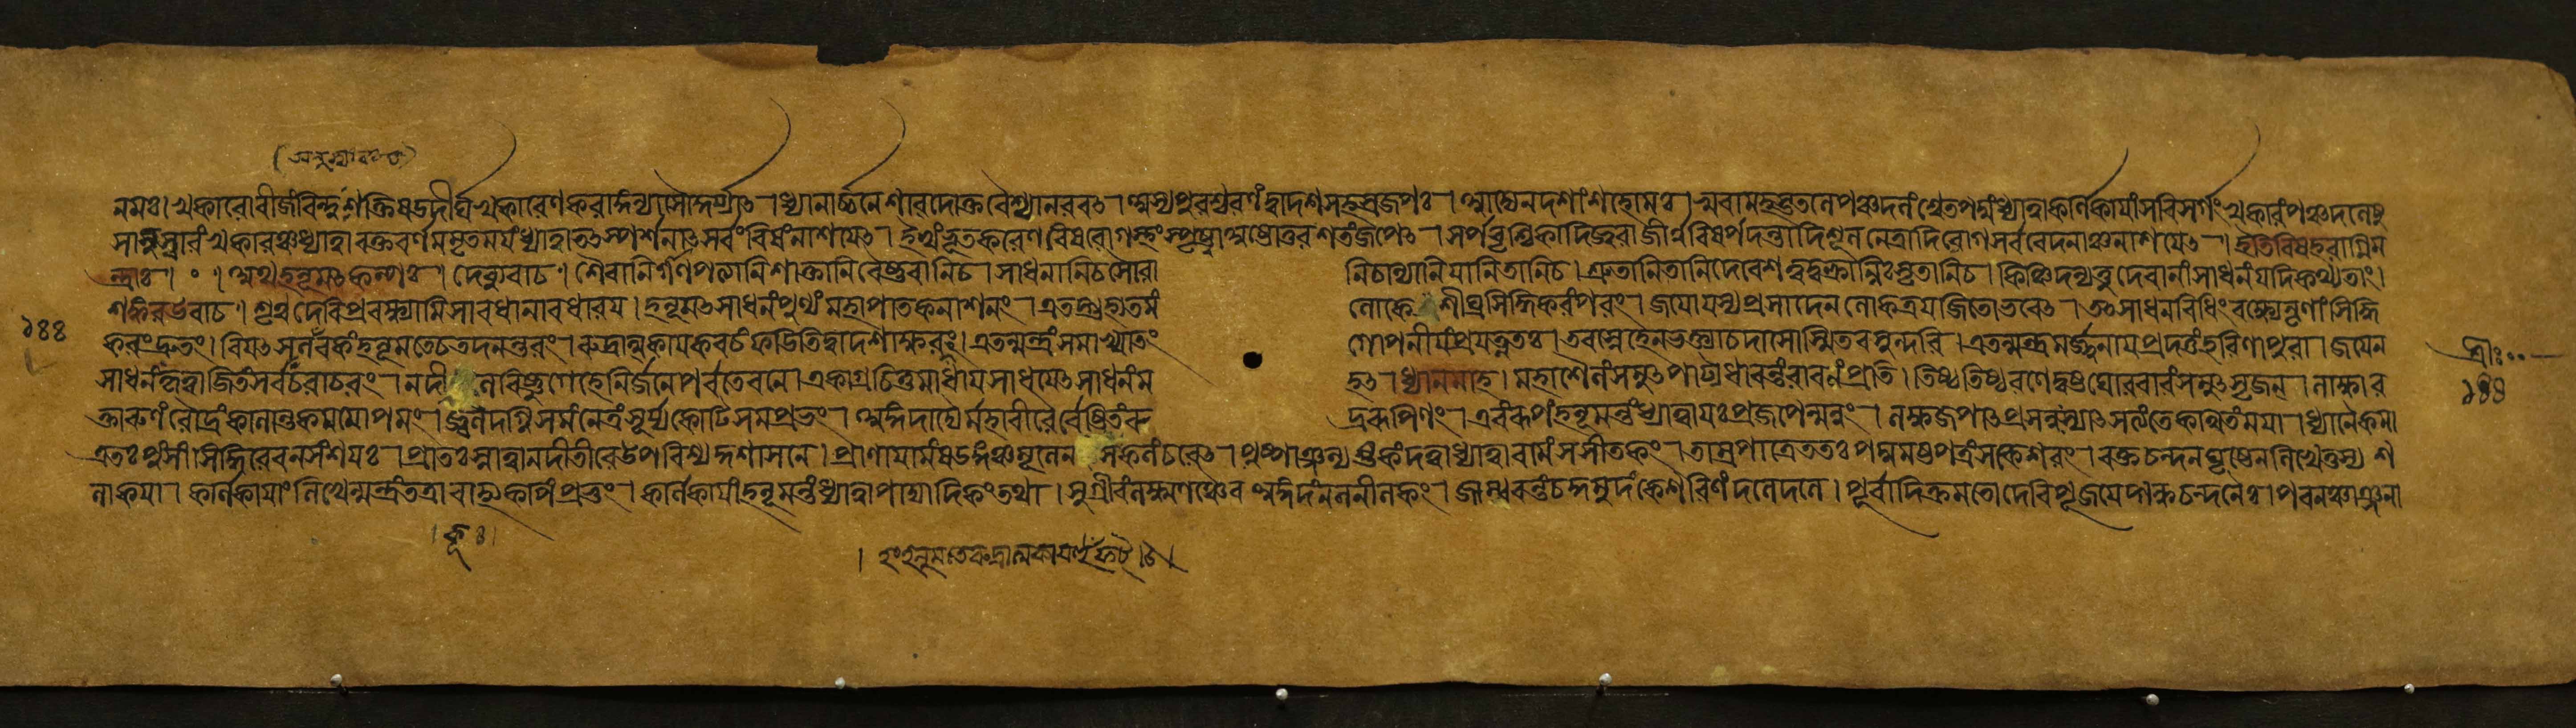 (অনুস্বারবৎ)
নমঃ। খকারোবীজংবিন্দুঃশক্তিঃষড্দীর্ঘখকারেণকরাঙ্গন্যাসৌ ধ্যানার্চ্চনেশারদোক্তবৈশ্বানরবৎ। অস্যপুরশ্চরণংদ্বাদশসহস্রজপঃ। আজ্যেনদশাংশহোমঃ। স্ববামহস্ততলেপঞ্চদলংশ্বেতপদ্মংধ্যাত্বাকর্ণিকায়াংসবিসর্গংখকারংপঞ্চদলেষু
সানুস্বারংখকারঞ্চধ্যাত্বারক্তবর্ণমমৃতময়ংধ্যাত্বাতৎস্পর্শনাৎসর্বংবিষংনাশয়েৎ। ইত্থংভূতকরেণবিষরোগস্তংস্পৃষ্ট্বাঅষ্টোত্তরশতংজপেৎ। সর্পবৃশ্চিকাদিজ্বরাজীর্ণবিষর্পদন্তাদিশূলনেত্রাদিরোগসর্ববেদনাঞ্চনাশয়েৎ। ইতিবিষহরাগ্নিম
ন্ত্রাঃ।॰।অথহনূমৎকল্পঃ। দেব্যুবাচ। শৈবানিগাণপত্যানিশাক্তানিবৈষ্ণবানিচ। সাধনানিচসৌরা ণিচান্যানিযানিতানিচ। শ্রুতানিতানিদেবেশত্বদ্বক্ত্রান্নিঃসৃতানিচ। কিঞ্চিদন্যত্তুদেবানাংসাধনংযদিকথ্যতাং।
শঙ্করউবাচ। শৃণুদেবিপ্রবক্ষ্যামিসাবধানাবধারয়। হনূমৎসাধনংপুণ্যংমহাপাতকনাশনং। এতদ্গুহ্যতমং লোকে শীঘ্রসিদ্ধিকরংপরং। জয়োযস্যপ্রসাদেনলোকত্রয়জিতোভবেৎ। তৎসাধনবিধিংবক্ষ্যেনৃণাংসিদ্ধি
১৪৪
করংদ্রুতং। বিয়ৎ হনূমতেচতদনন্তরং। রুদ্রাত্মকায়কবচংফডিতিদ্বাদশাক্ষরঃ। এতন্মন্ত্রংসমাখ্যাতং গোপনীয়ংপ্রযত্নতঃ। তবস্নেহেনভক্ত্যাচদাসোস্মিতবসুন্দরি। এতন্মন্ত্রমর্জ্জুনায়প্রদত্তংহরিণাপুরা। জয়েন
সাধনংকৃত্বাজিতংসর্বংচরাচরং। নদী বিষ্ণুগেহেনির্জ্জনেপর্বতেবনে। একাগ্রচিত্তমাধায়সাধয়েৎসাধনংম হৎ। ধ্যানমাহ। মহাশৈলংসমুৎপাট্যধাবন্তংরাবণংপ্রতি। তিষ্ঠতিষ্ঠরণেদুষ্টঘোররাবংসমুৎসৃজন। লাক্ষার
ক্তারুণংরৌদ্রংকালান্তকযমোপমং। জ্বলদগ্নিসমংনেত্রংসূর্য্যকোটিসমপ্রভং। অঙ্গদাদ্যৈর্মহাবীরৈর্বেষ্টিতংরু দ্ররূপিণং। এবংরূপংহনূমন্তংধ্যাত্বাযঃপ্রজপেন্মনুং। লক্ষজপাৎপ্রসন্নঃস্যাৎসত্যংতেকথিতংময়া। ধ্যানৈকমা
ত্রীঃ॰॰
১৪৪
ত্রতঃপুংসাংসিদ্ধিরেবনসংশয়ঃ। প্রাতঃস্নাত্বানদীতীরেউপবিশ্যকুশাসনে। প্রাণায়ামংষড়ঙ্গঞ্চমূলেন সকলংচরেৎ। পুষ্পাঞ্জল্যষ্টকংদত্ত্বাধ্যাত্বারামংসসীতকং। তাম্রপাত্রেততঃপদ্মমষ্টপত্রংসকেশরং। রক্তচন্দনঘৃষ্টেনলিখেত্তস্যশ
লাকয়া। কর্ণিকায়াংলিখেন্মন্ত্রংতত্রাবাহ্যকপিংপ্রভুং। কর্ণিকায়াংহনূমন্তংধ্যাত্বাপাদ্যাদিকংতথা। সুগ্রীবংলক্ষ্মণঞ্চৈবঅঙ্গদংনলনীলকং। জাম্ববন্তংচকুমুদংকেশরিণংদলেদলে। পূর্বাদিক্রমতোদেবিপূজয়েদ্গন্ধচন্দনৈঃ। পবনঞ্চাঞ্জনা
।হূঁঃ।
। হংহনুমতেরুদ্রাত্মকায়হূঁফট্।